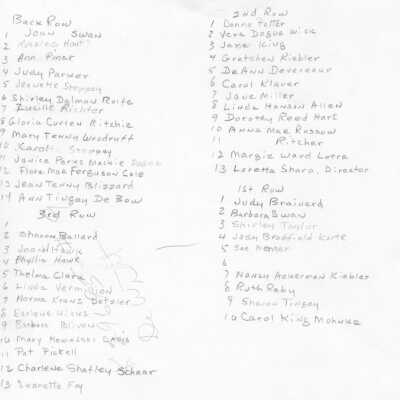 Back Row
1 Joan Swan
2
3 Ann
4 Judy Parmer
5 Jeanette Stoppay
6 Shirley Dolman Rolfe
7 Lucille Richter
8 Gloria Curren Ritchie
9 Mary Tenny Woodruff
10 Karolle Stoppay
11 Janice Parks Mackie
12 Flora Mae Ferguson Cole
13 Jean Tenny Blizzard
14 Ann Tingay De Bow
3rd Row
1
2 Sharon Ballard
3 Joan
4 Phyllis Hawk
5 Thelma Clark
6 Linda
7 Norma Kranz Detzler
8 Earlene Hicks
9 Barbara Bliven
10 Mary Kowalski
11 Pat Pickell
12 Charlene Shafley Schaar
13 Jeanette Fay
2nd Row
1 Donna Potter
2 Vera Dague Wick
3 Jane King
4 Gretchen Kiebler
5 DeAnn Devereaux
6 Carol Klaver
7 Jane Miller
8 Linda Hanson Allen
9 Dorothy Reed Hart
10 Anna Mae Russow
11 Pitcher
12 Margie Ward Lotra
13 Loretta Sharo, Director
1st Row
1 Judy Brainard
2 Barbara Swan
3 Shirley Taylor
4 Judy Bradfield
5 Sue
6
7 Nancy Ackerman Kiebler
8 Ruth Raby
9 Sharon Tingey
10 Carol King